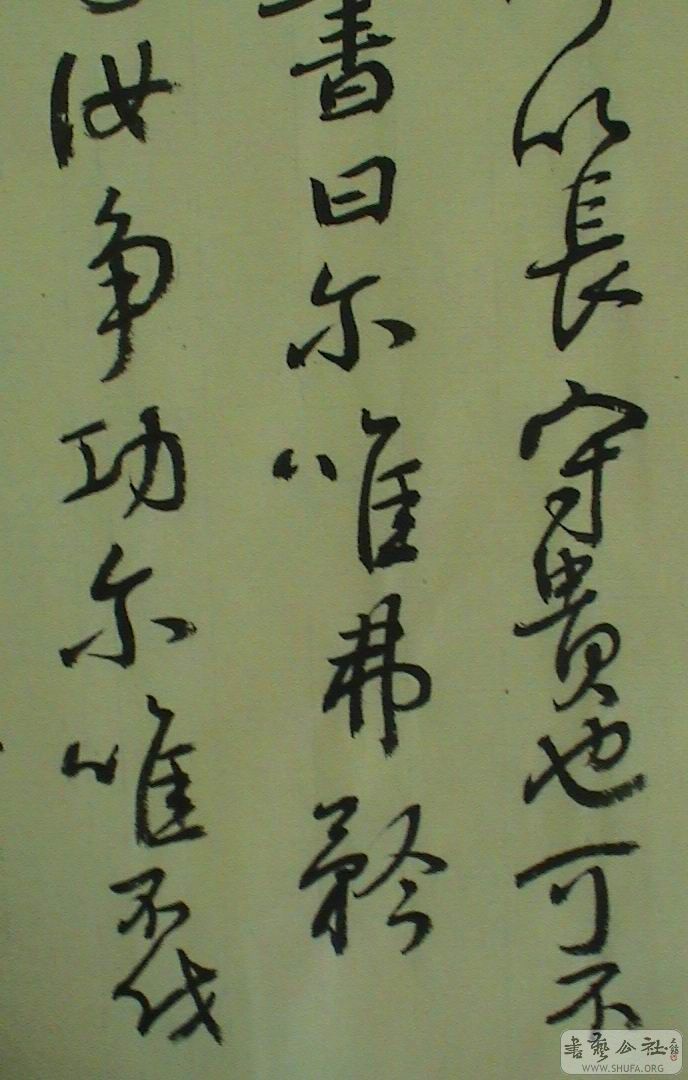 以長守貴也可不
書曰尔唯弗矜
汝争功尔唯不伐
書藝公社
WWW.SHUFA.ORG